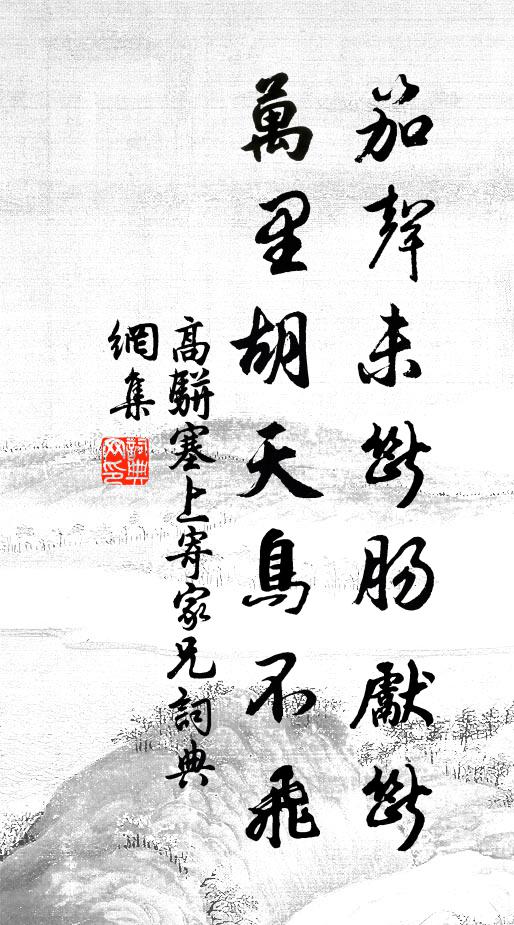 笳聲未斷腸獻斷
萬里胡天鳥不飛
高駢塞上寄家兄詞典
網集
詞典
网印